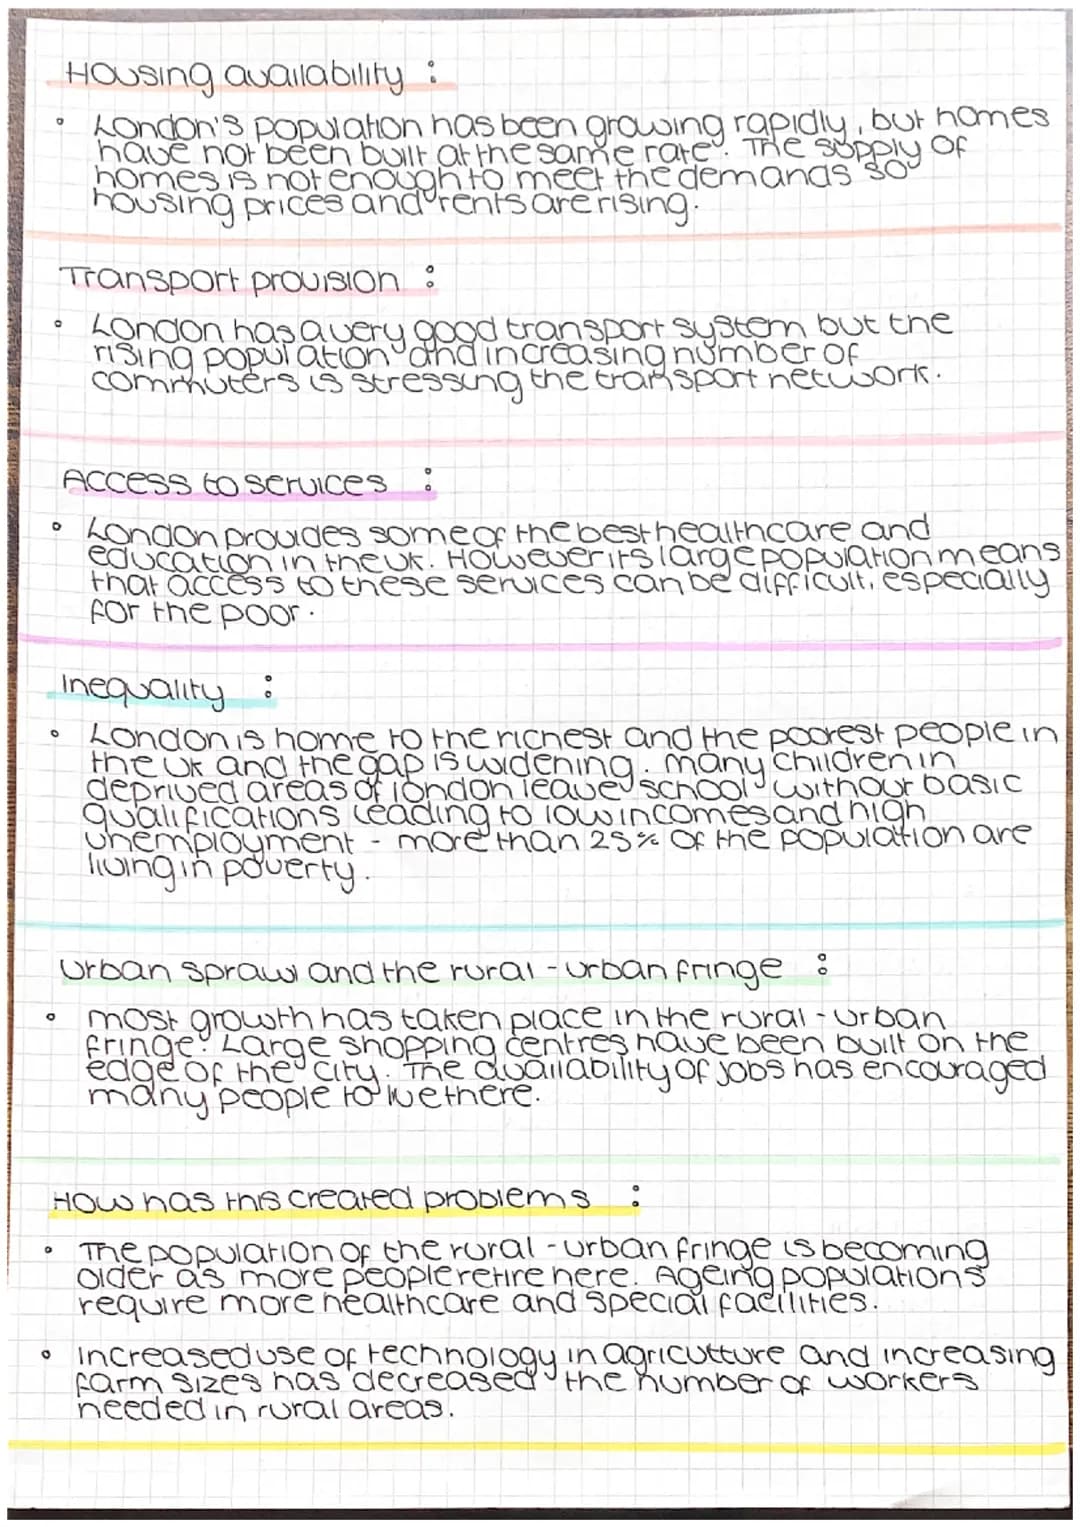 Housing availability :
• London's population has been growing rapidly, but homes
have not been built at the same rate. The supply of
homes is not enough to meet the demands so
housing prices and rents are rising.
Transport provision :
• London has a very good transport system but the
rising population and increasing number of
commuters is stressing the transport network.
Access to services :
• London provides some of the best healthcare and
education in the UK. However its large population means
that access to these services can be difficult, especially
for the poor.
Inequality :
• London is home to the richest and the poorest people in
the UK and the gap is widening. Many children in
deprived areas of london leave school without basic
qualifications leading to low incomes and high
unemployment - more than 25% of the population are
living in poverty.
Urban sprawl and the rural-urban fringe :
• most growth has taken place in the rural-urban
fringe. Large shopping centres have been built on the
edge of the city. The availability of jobs has encouraged
many people to live there.
How has this created problems :
• The population of the rural-urban fringe is becoming
older as more people retire here. Ageing populations
require more healthcare and special facilities.
• Increased use of technology in agriculture and increasing
farm sizes has decreased the number of workers
needed in rural areas.